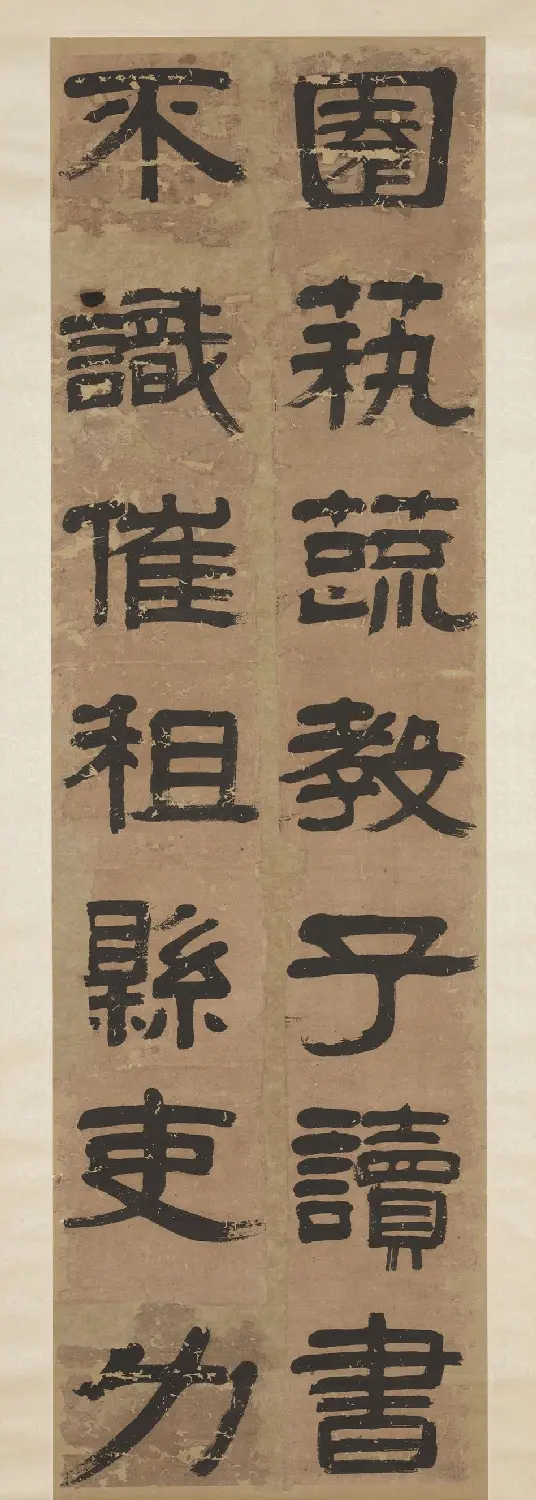 園蓺蔬教子讀書
不識催租縣吏力